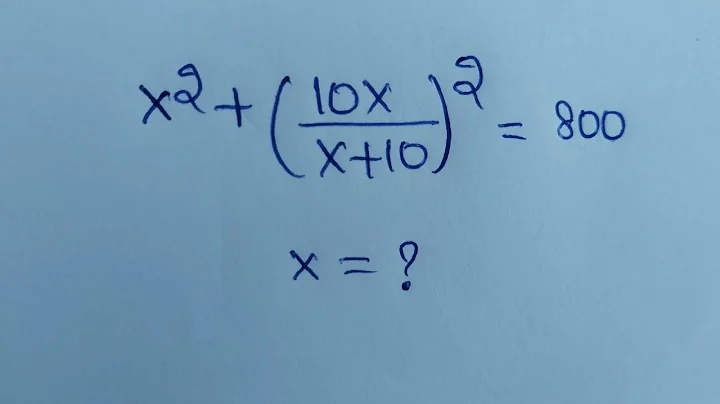 x² + (10x / x+10)² = 800
x = ?